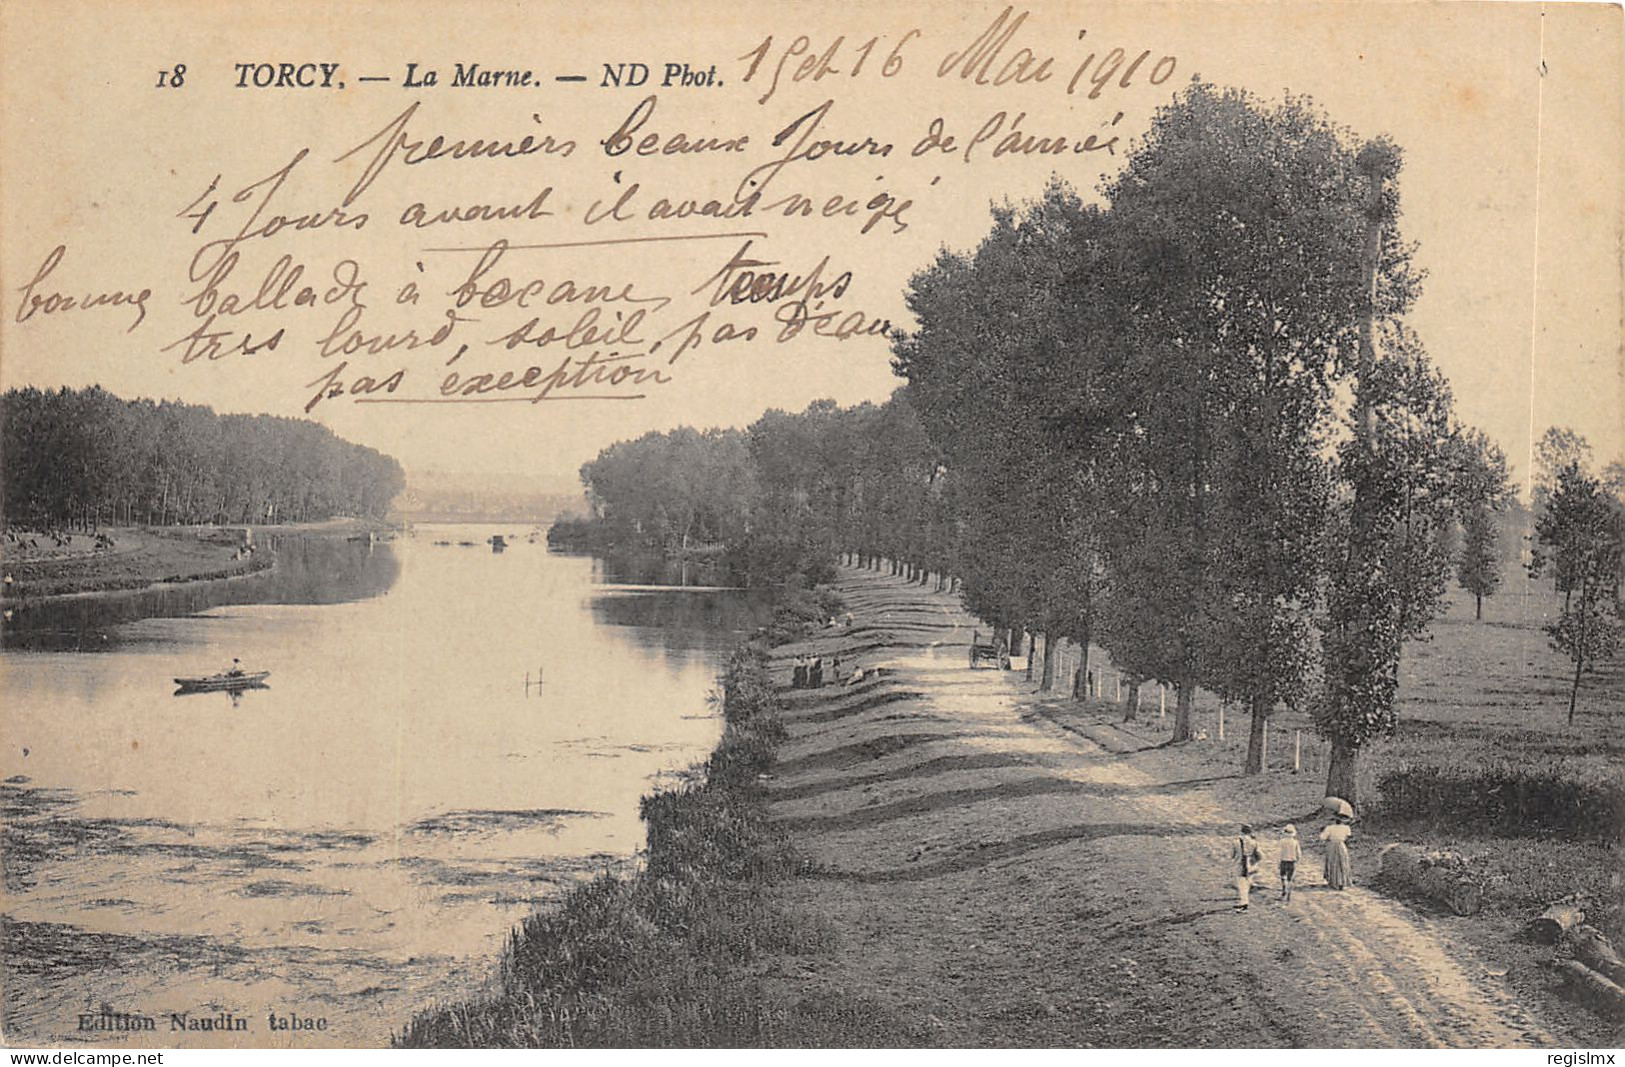 18 TORCY. — La Marne. — ND Phot. 15 et 16 Mai 1910
premièrs beaux Jours de l'année
4 Jours avant il avait neigé
bonne ballade à becane, temps
tres lourd, soleil, pas d'eau
pas exception
Edition Naudin tabac
regislmx